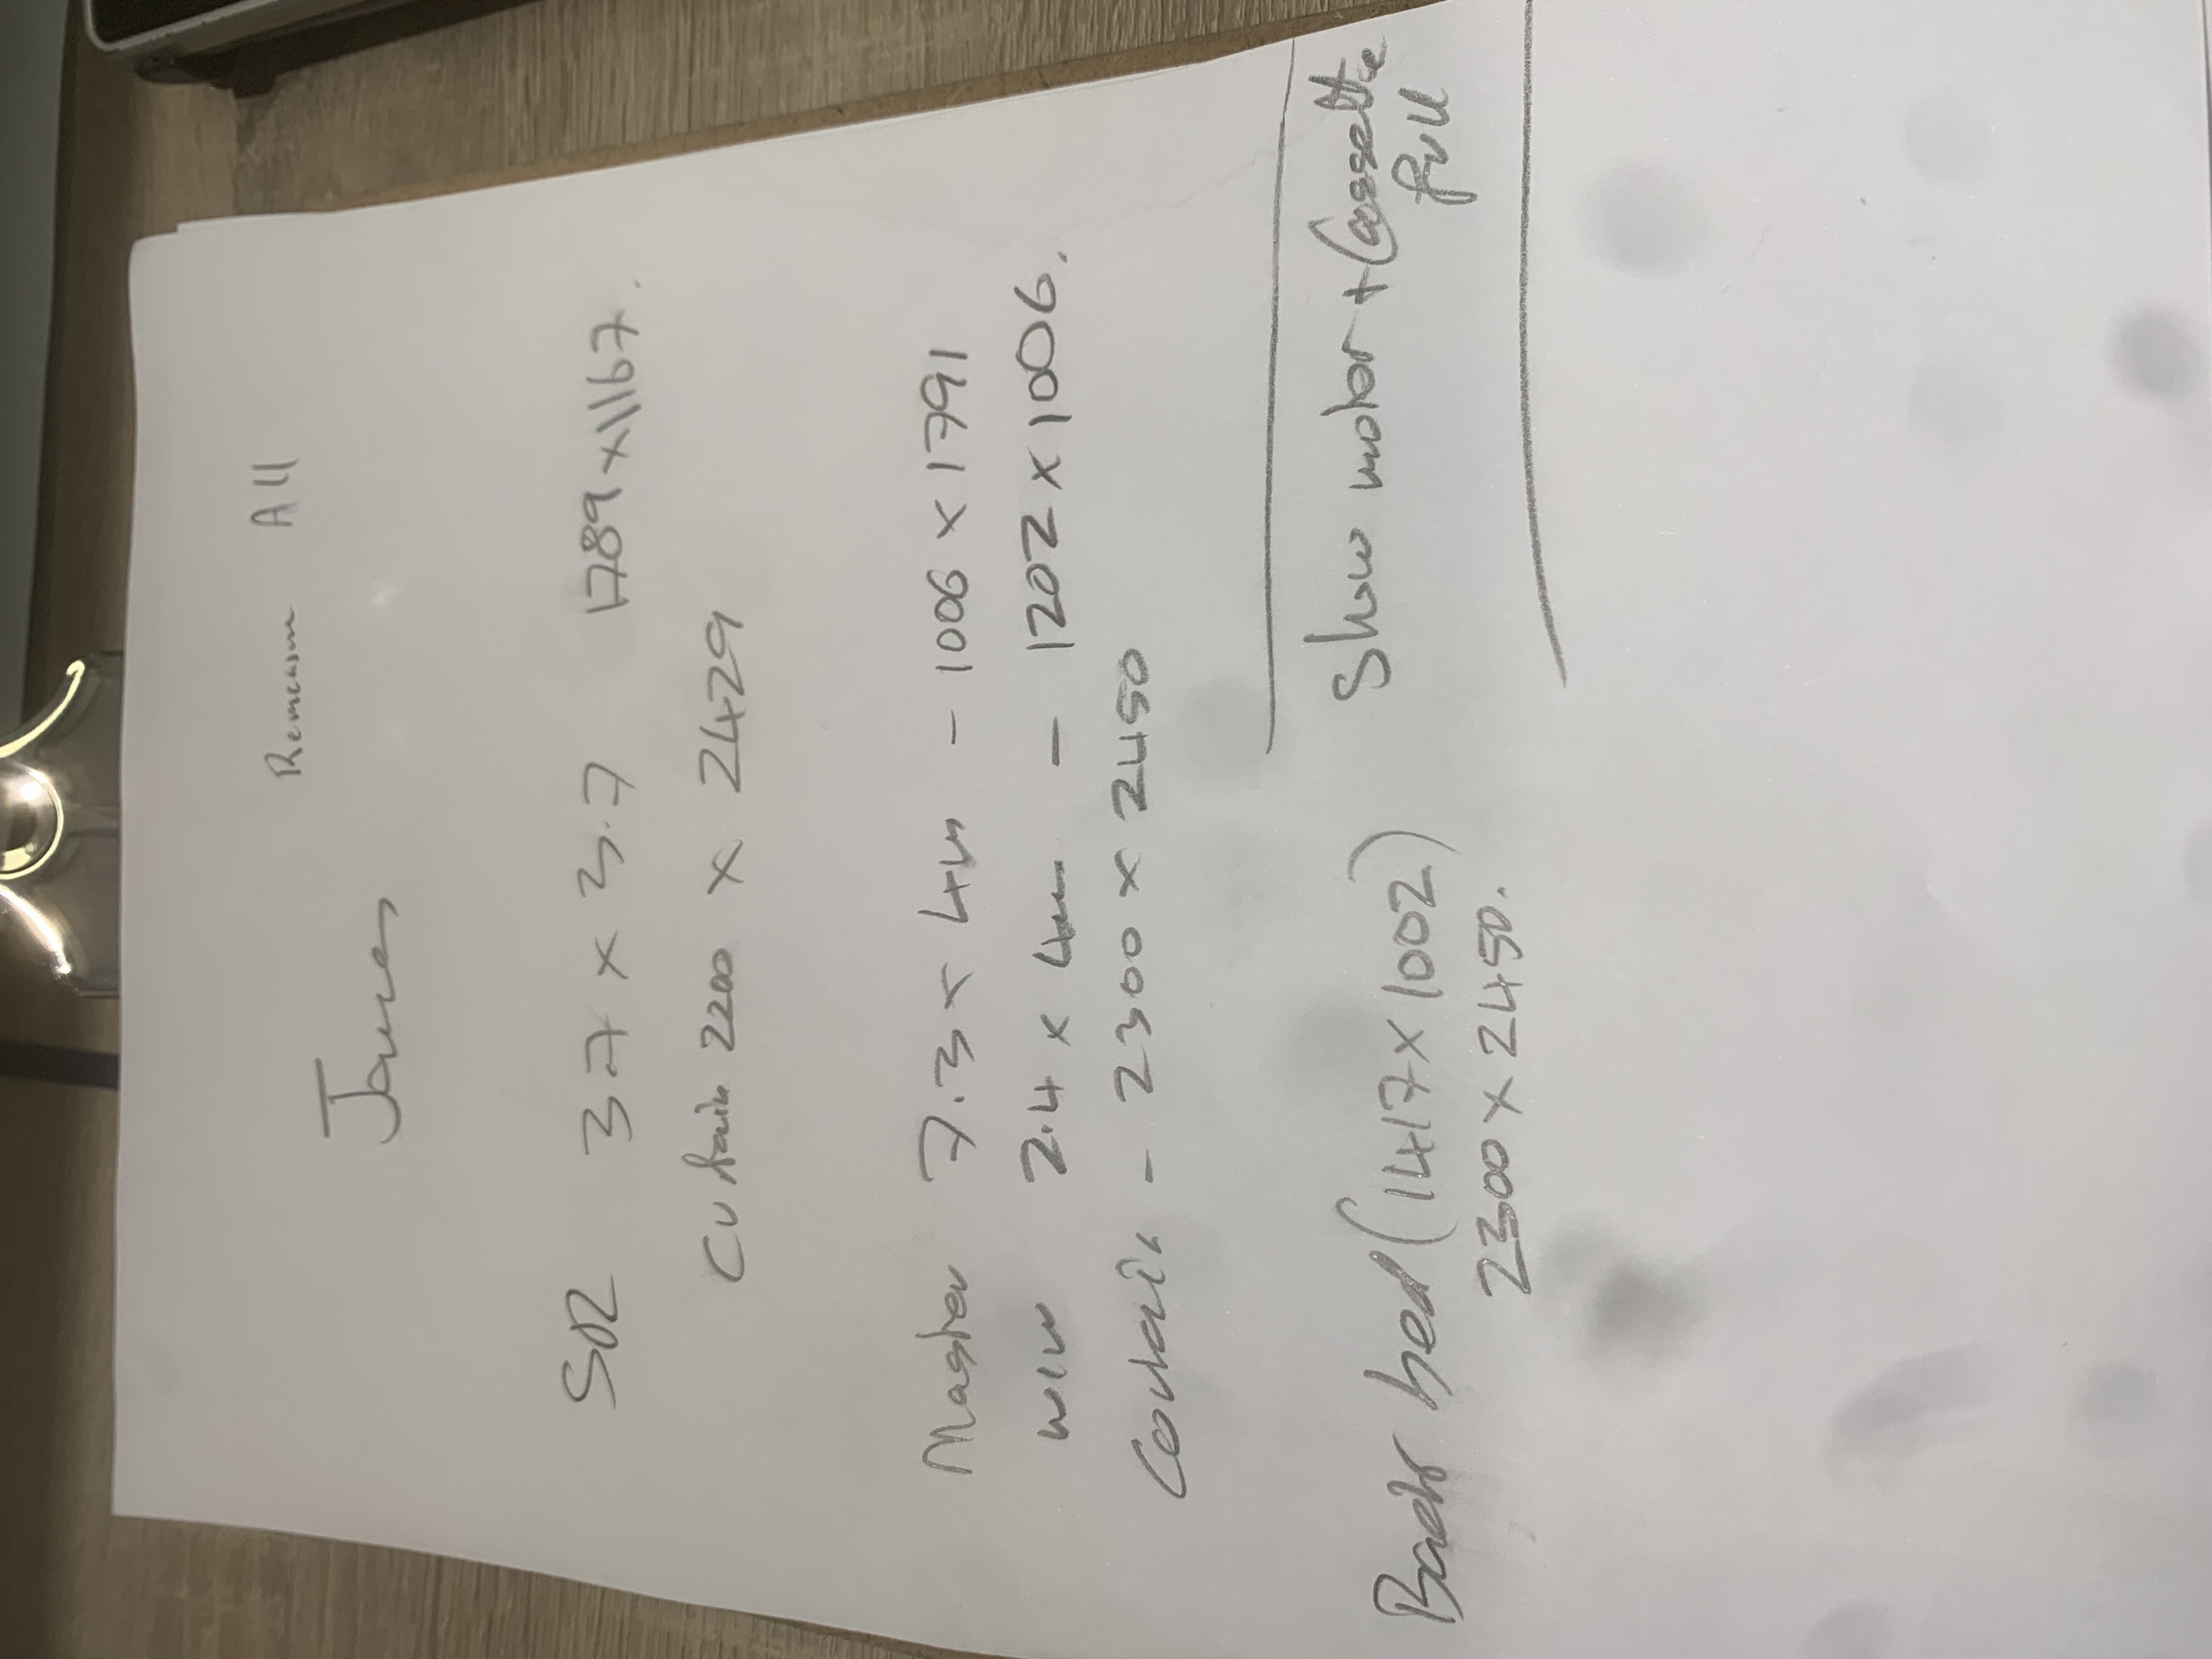 Remeasure All
James
SR 3.7 x 3.7 1789 x 1167.
Curtain 2200 x 2429
Master 7.3 x 4m - 1006 x 1791
WIW 2.4 x 4m - 1202 x 1006.
Curtain - 2300 x 2450
Show motor + Cassette
full
Back bed (1417 x 1002)
2300 x 2450.